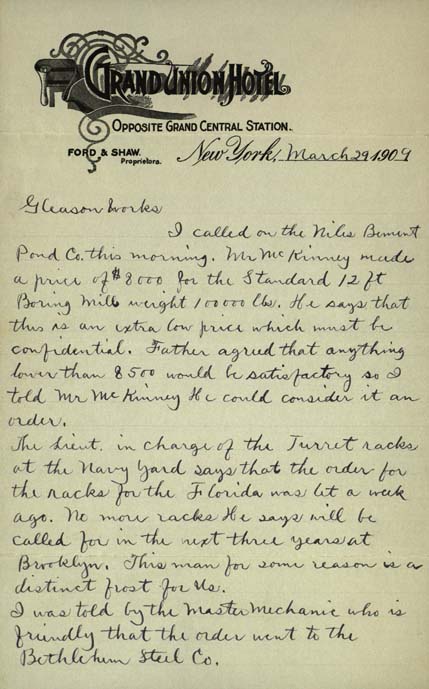 GRAND UNION HOTEL
OPPOSITE GRAND CENTRAL STATION.
FORD & SHAW.
Proprietors.
New York, March 29 1909
Gleason Works
I called on the Niles Bement
Pond Co. this morning. Mr McKinney made
a price of $8000 for the Standard 12 ft
Boring Mill weight 100000 lbs. He says that
this is an extra low price which must be
confidential. Father agreed that anything
lower than 8500 would be satisfactory so I
told Mr McKinney He could consider it an
order.
The Lieut. in charge of the Turret racks
at the Navy Yard says that the order for
the racks for the Florida was let a week
ago. No more racks He says will be
called for in the next three years at
Brooklyn. This man for some reason is a
distinct frost for us.
I was told by the Master Mechanic who is
friendly that the order went to the
Bethlehem Steel Co.